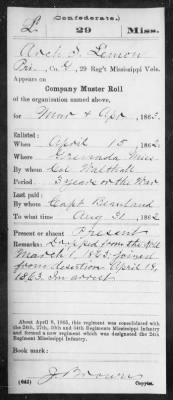 (Confederate.)
L. 29 Miss.
Arch S. Lemon
Pri., Co. G, 29 Reg't Mississippi Vols.
Appears on
Company Muster Roll
of the organization named above,
for Mar & Apr, 1863.
Enlisted:
When April 15, 1862.
Where Grenada Miss
By whom Col Walthall
Period 3 years or the War
Last paid:
By whom Capt
To what time Aug 31, 1862.
Present or absent Present
Remarks: Dropped from the roll
March 1, 1863. Joined
from desertion April 19,
1863. In arrest
About April 9, 1865, this regiment was consolidated with
the 24th, 27th, 30th and 34th Regiments Mississippi Infantry
and formed a new regiment which was designated the 24th
Regiment Mississippi Infantry.
Book mark:
J. Brown
(642) Copyist.